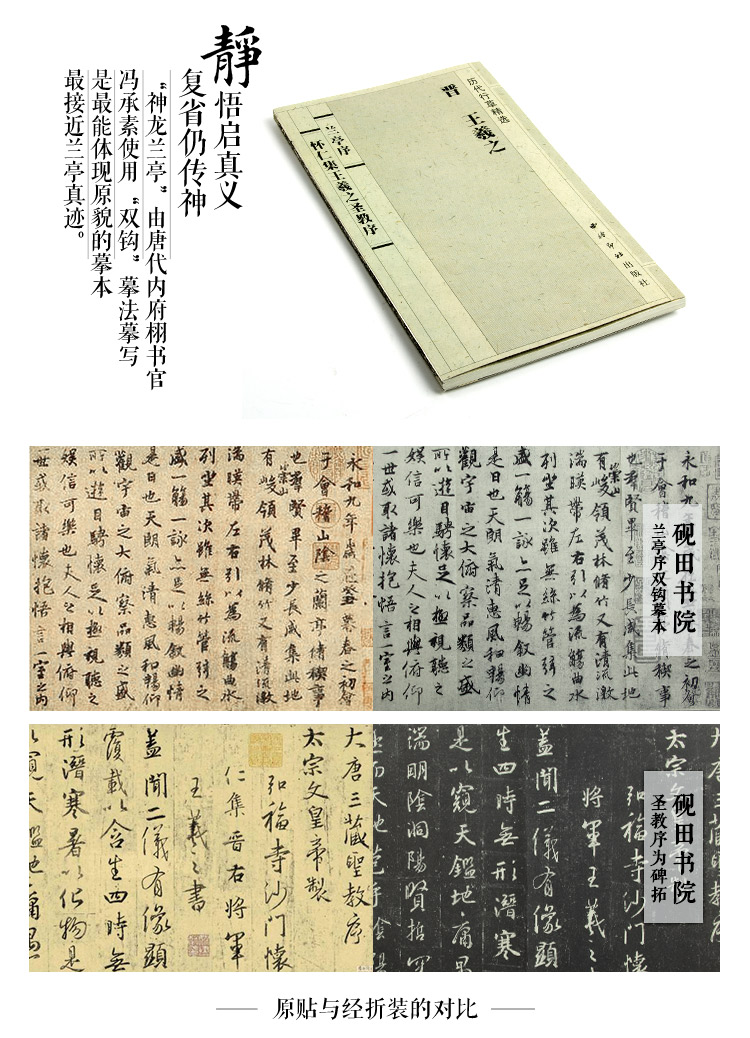 静
悟启真义
复省仍传神
“神龙兰亭”由唐代内府栩书官
冯承素使用“双钩”摹法摹写
是最能体现原貌的摹本
最接近兰亭真迹。
历代行草精选
晋 王羲之
兰亭序
怀仁集王羲之圣教序
西泠印社出版社
永和九年歲在癸丑暮春之初會
于會稽山陰之蘭亭脩稧事
也羣賢畢至少長咸集此地
有崇山峻領茂林脩竹又有清流激
湍暎帶左右引以為流觴曲水
列坐其次雖無絲竹管弦之
盛一觴一詠亦足以暢敘幽情
是日也天朗氣清惠風和暢仰
觀宇宙之大俯察品類之盛
所以遊目騁懷足以極視聽之
娛信可樂也夫人之相與俯仰
一世或取諸懷抱悟言一室之內
永和九年
春之初會
于會稽
脩稧事
也羣賢畢至少長咸集此地
有崇山峻領茂林脩竹又有清流激
湍暎帶左右引以為流觴曲水
列坐其次雖無絲竹管弦之
盛一觴一詠亦足以暢敘幽情
是日也天朗氣清惠風和暢仰
觀宇宙之大俯察品類之盛
所以遊目騁懷足以極視聽之
娛信可樂也夫人之相與俯仰
一世或取諸懷抱悟言一室之內
砚田书院
兰亭序双钩摹本
大唐三藏聖教序
太宗文皇帝製
弘福寺沙門懷
仁集晉右將軍
王羲之書
蓋聞二儀有像顯
覆載以含生四時無
形潛寒暑以化物是
以窺天鑑地庸愚
大唐三
教序
太宗文
弘福寺
將軍王羲之
蓋聞二儀有像顯
生四時無形潛寒
是以窺天鑑地庸愚
端明陰洞陽賢哲罕
砚田书院
圣教序为碑拓
原贴与经折装的对比